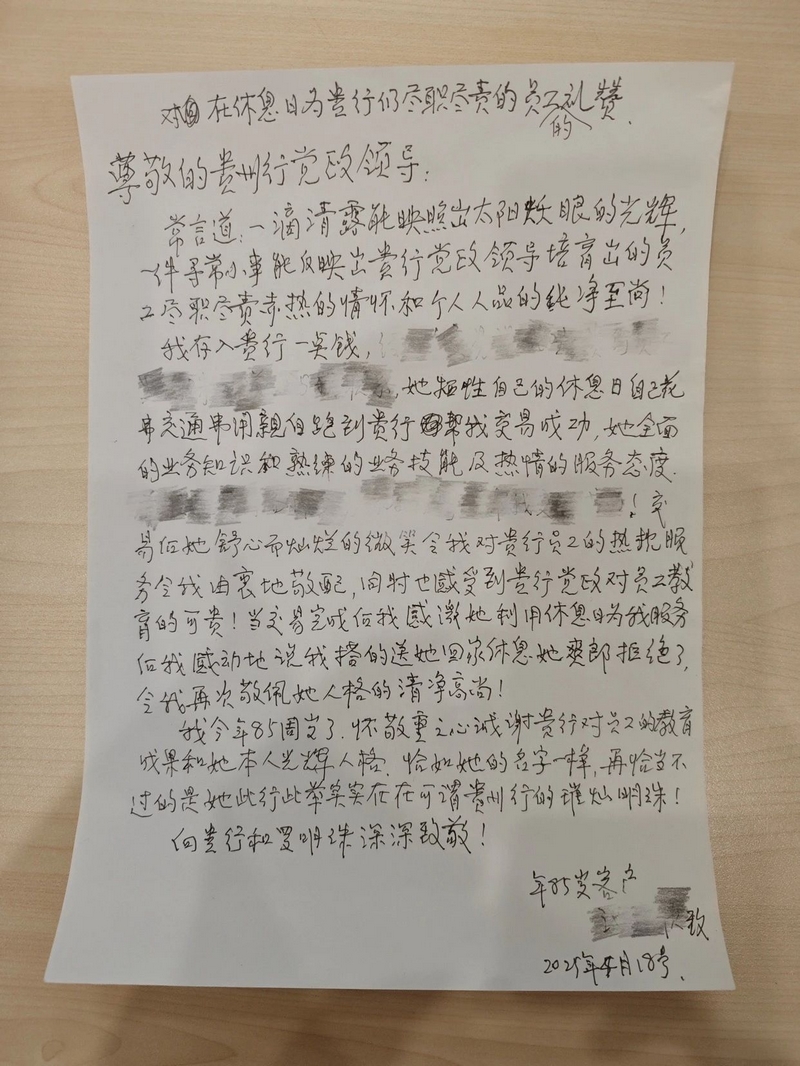 对在休息日为贵行们尽职尽责的员工的礼赞.
尊敬的贵州行党政领导:
常言道:一滴清露能映照出太阳耀眼的光辉,
一件寻常小事能反映出贵行党政领导培育出的员
工尽职尽责赤热的情怀和个人人品的纯净至尚!
我存入贵行一笑钱,
,她牺牲自己的休息日自己花
交通串用親自跑到贵行帮我交易成功,她全面
的业务知识和熟练的业务技能及热情的服务态度.
!交
易后她舒心而灿烂的微笑令我对贵行员工的热忱服
务令我由衷地敬配,同时也感受到贵行党政对员工教
育的可贵!当交易完成后我感激她利用休息日为我服务
后我感动地说我搭的送她回家休息她爽郎拒绝了,
令我再次敬佩她人格的清净高尚!
我今年85周岁了.怀敬重之心诚谢贵行对员工的教育
成果和她本人光辉人格.恰如她的名字一样,再恰当不
过的是她此行此举实实在在可谓贵州行的璀灿明珠!
向贵行和罗明珠深深致敬!
年85岁客户
致
2025年月18号.